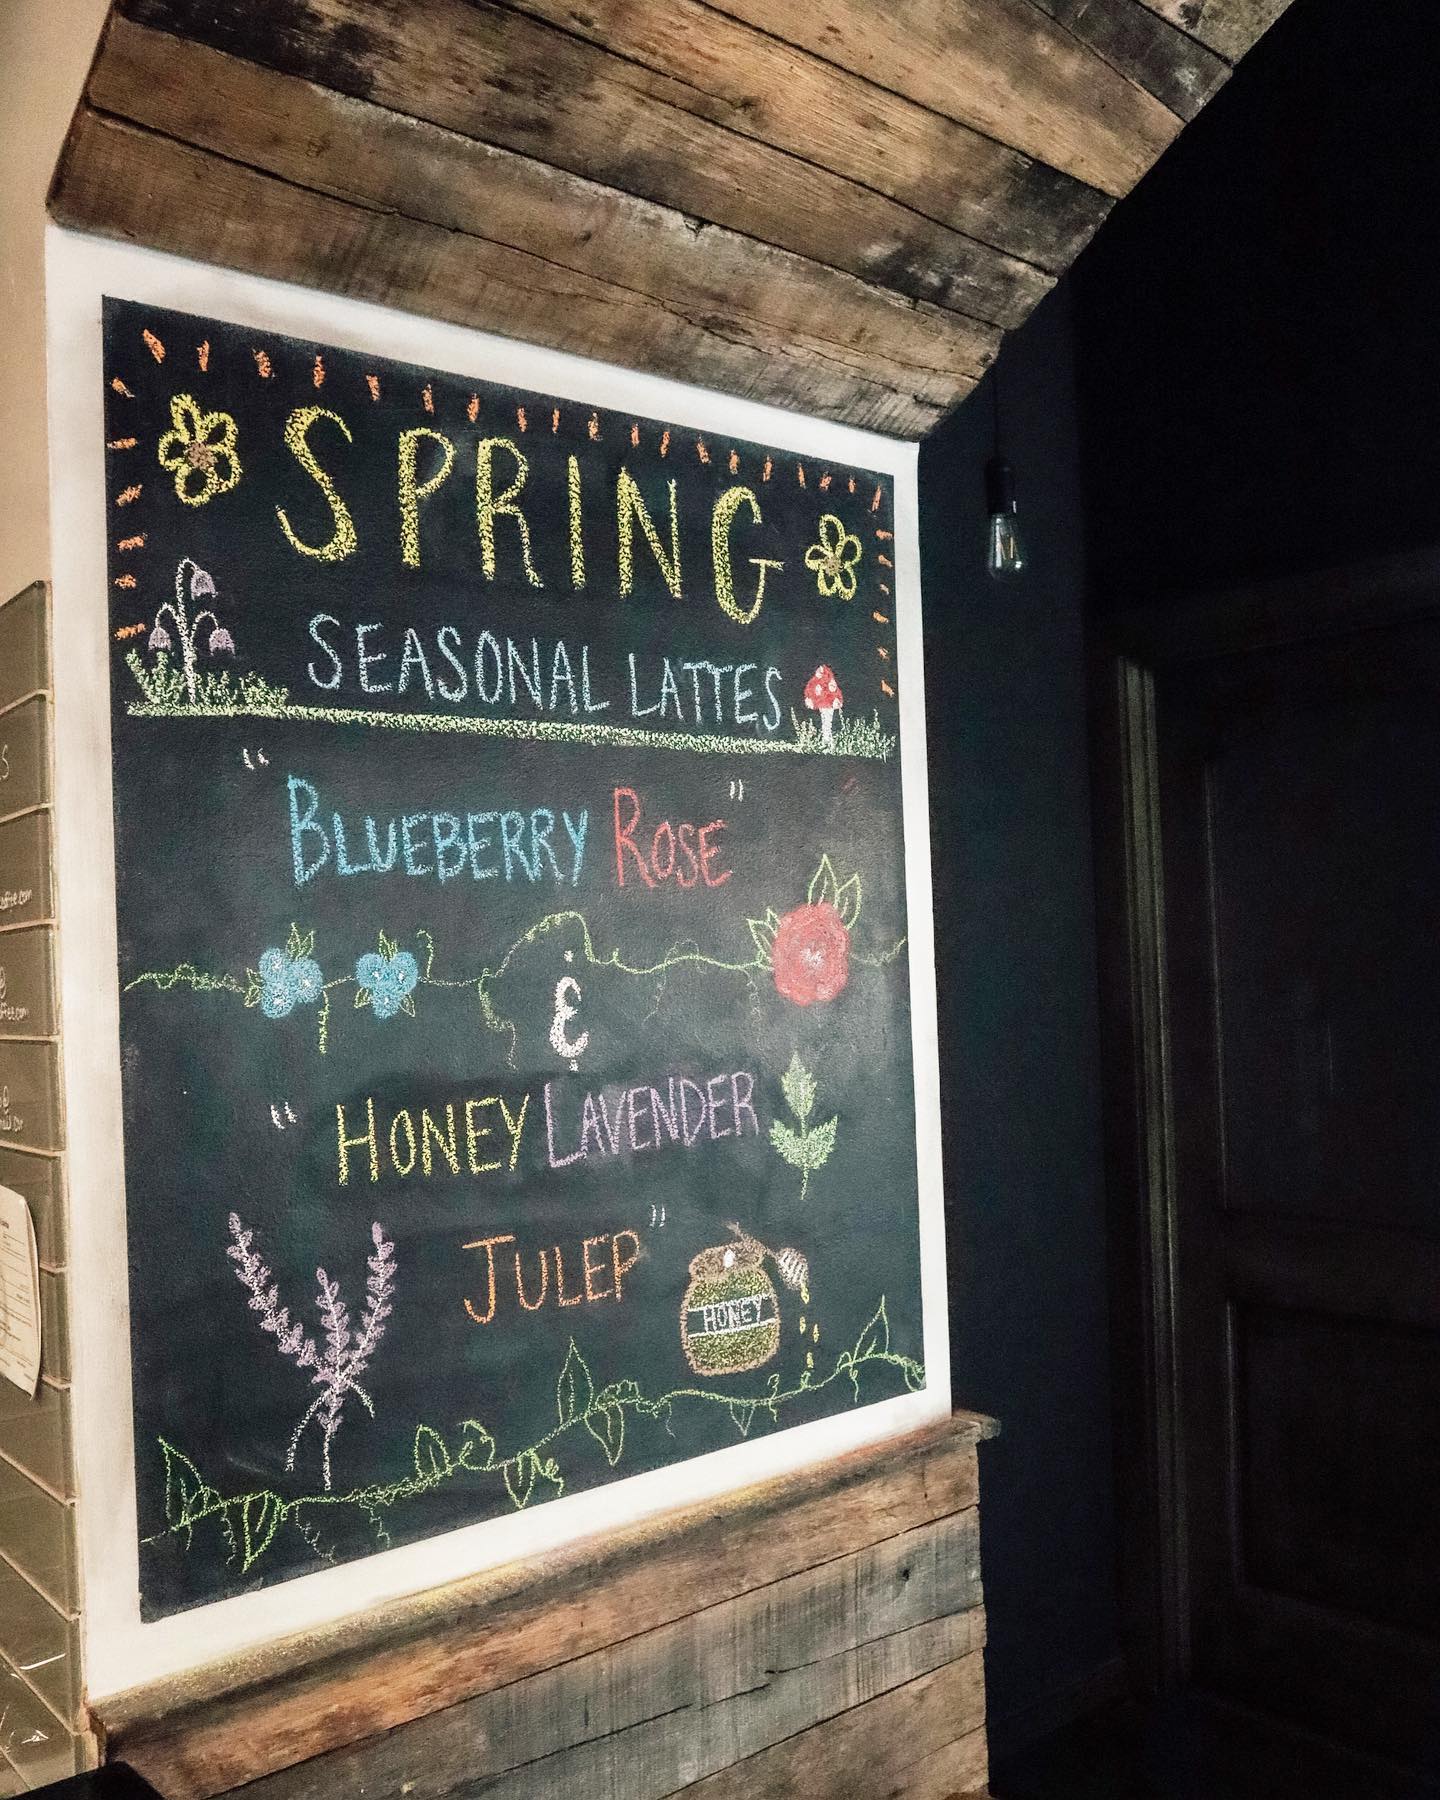 SPRING
SEASONAL LATTES
"BLUEBERRY ROSE"
&
"HONEY LAVENDER
JULEP"
HONEY